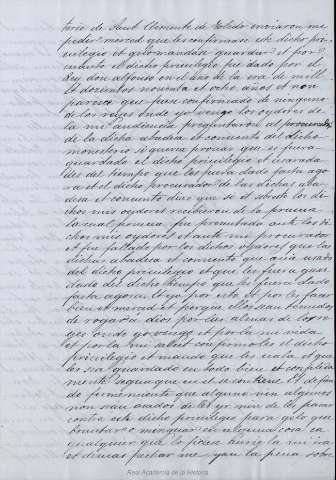 terio de Sant Clemente de Toledo enviaron me
pedir merced que les confirmase este dicho pri-
vilegio et gelo mandase guardar et por
cuanto el dicho privilegio fue dado por el
Rey don Alfonso en el año de la era de mill
et docientos noventa et ocho años et non
paresce que fuese confirmado de ninguno
de los reyes onde yo vengo los oydores de
la mi audiencia preguntaron al procurador
de la dicha abadesa et convento del dicho
monesterio si queria provar que se fuera
guardado el dicho privilegio et usara
del del tiempo que les fuera dado fasta ago-
ra et el dicho procurador de las dichas aba-
desa et convento dixo que si et sobresto los di-
chos mis oydores recibieron de la prueva
la cual prueva fue presentada ante los di-
chos mis oydores et ante mi procurador
et fue fallado por los dichos oydores que las
dichas abadesa et convento que avia usado
del dicho privilegio et que les fuera guar-
dado del dicho tiempo que les fuera dado
fasta agora. et yo por esto et por les facer
bien et merced et porque ellas son tenudas
de rogar a dios por las almas de los re-
yes onde yo vengo et por la mi vida
et por la mi salut confirmoles el dicho
privilegio et mando que les vala et que
les sea guardado en todo bien et conplida-
mente segun que en el se contiene. Et defen-
do firmemente que alguno nin algunos
non sean osados de les yr nin de les pasar
contra este dicho privilegio para gelo que-
brantar o minguar en alguna cosa ca
qualquier que lo fiziese avrie la mi ira
et demas pechar me yan la pena sobre
Real Academia de la Historia